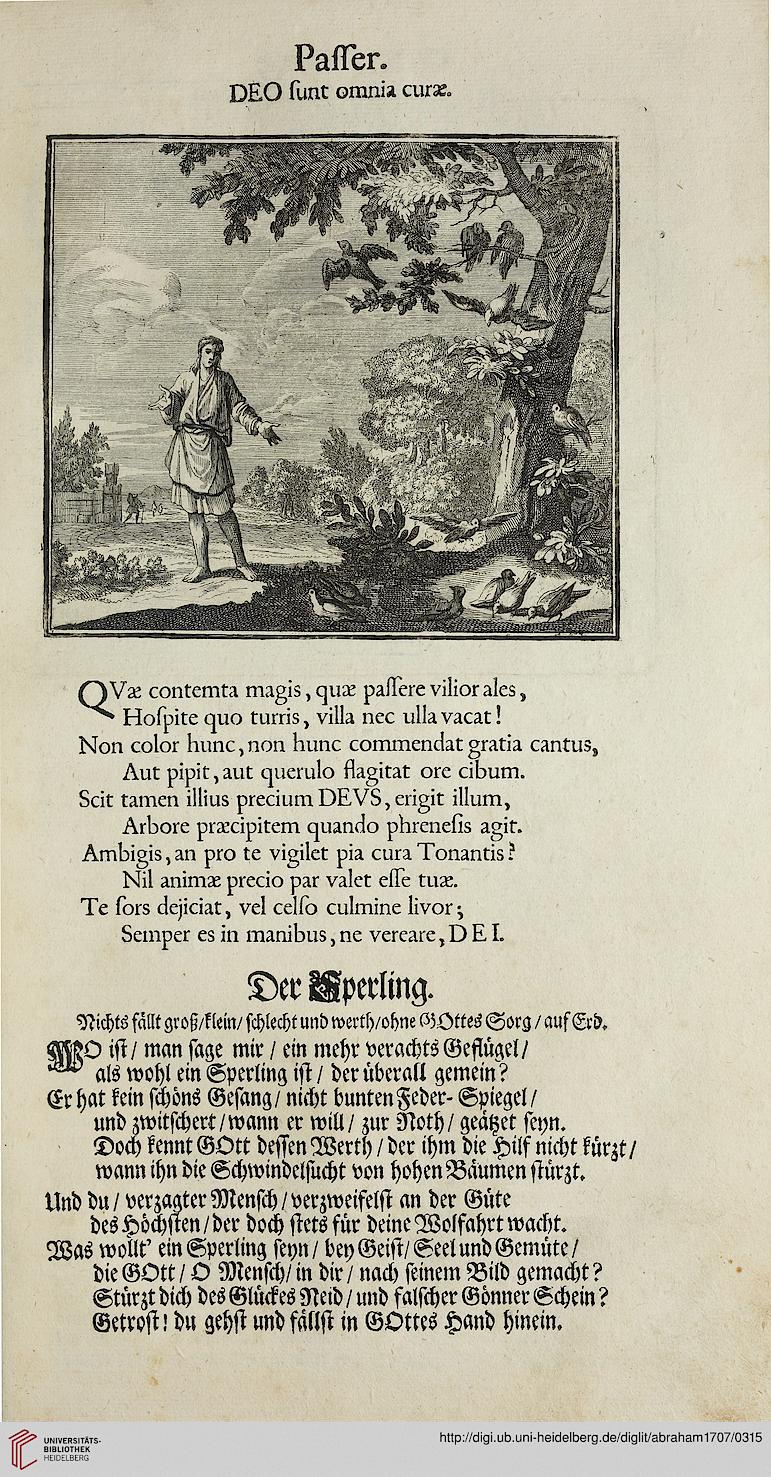 Paſſer.
DEO ſunt omnia curæ.
QVæ contemta magis, quæ paſſere vilior ales,
Hoſpite quo turris, villa nec ulla vacat!
Non color hunc, non hunc commendat gratia cantus,
Aut pipit, aut querulo flagitat ore cibum.
Scit tamen illius precium DEVS, erigit illum,
Arbore præcipitem quando phreneſis agit.
Ambigis, an pro te vigilet pia cura Tonantis?
Nil animæ precio par valet eſſe tuæ.
Te ſors dejiciat, vel celſo culmine livor;
Semper es in manibus, ne vereare, DEI.
Der Sperling.
Nichts fällt groß/klein/ ſchlecht und werth/ohne GOttes Sorg / auf Erd.
WO iſt / man ſage mir / ein mehr verachts Geflügel /
als wohl ein Sperling iſt / der überall gemein?
Er hat kein ſchöns Geſang / nicht bunten Feder- Spiegel /
und zwitſchert / wann er will / zur Noth / geätzet ſeyn.
Doch kennt GOtt deſſen Werth / der ihm die Hilf nicht kürzt /
wann ihn die Schwindelſucht von hohen Bäumen ſtürzt.
Und du / verzagter Menſch / verzweifelſt an der Güte
des Höchſten / der doch ſtets für deine Wolfahrt wacht.
Was wollt' ein Sperling ſeyn / bey Geiſt / Seel und Gemüte /
die GOtt / O Menſch / in dir / nach ſeinem Bild gemacht?
Stürzt dich des Glückes Neid / und falſcher Gönner Schein?
Getroſt! du gehſt und fällſt in GOttes Hand hinein.
UNIVERSITÄTS-
BIBLIOTHEK
HEIDELBERG
http://digi.ub.uni-heidelberg.de/diglit/abraham1707/0315